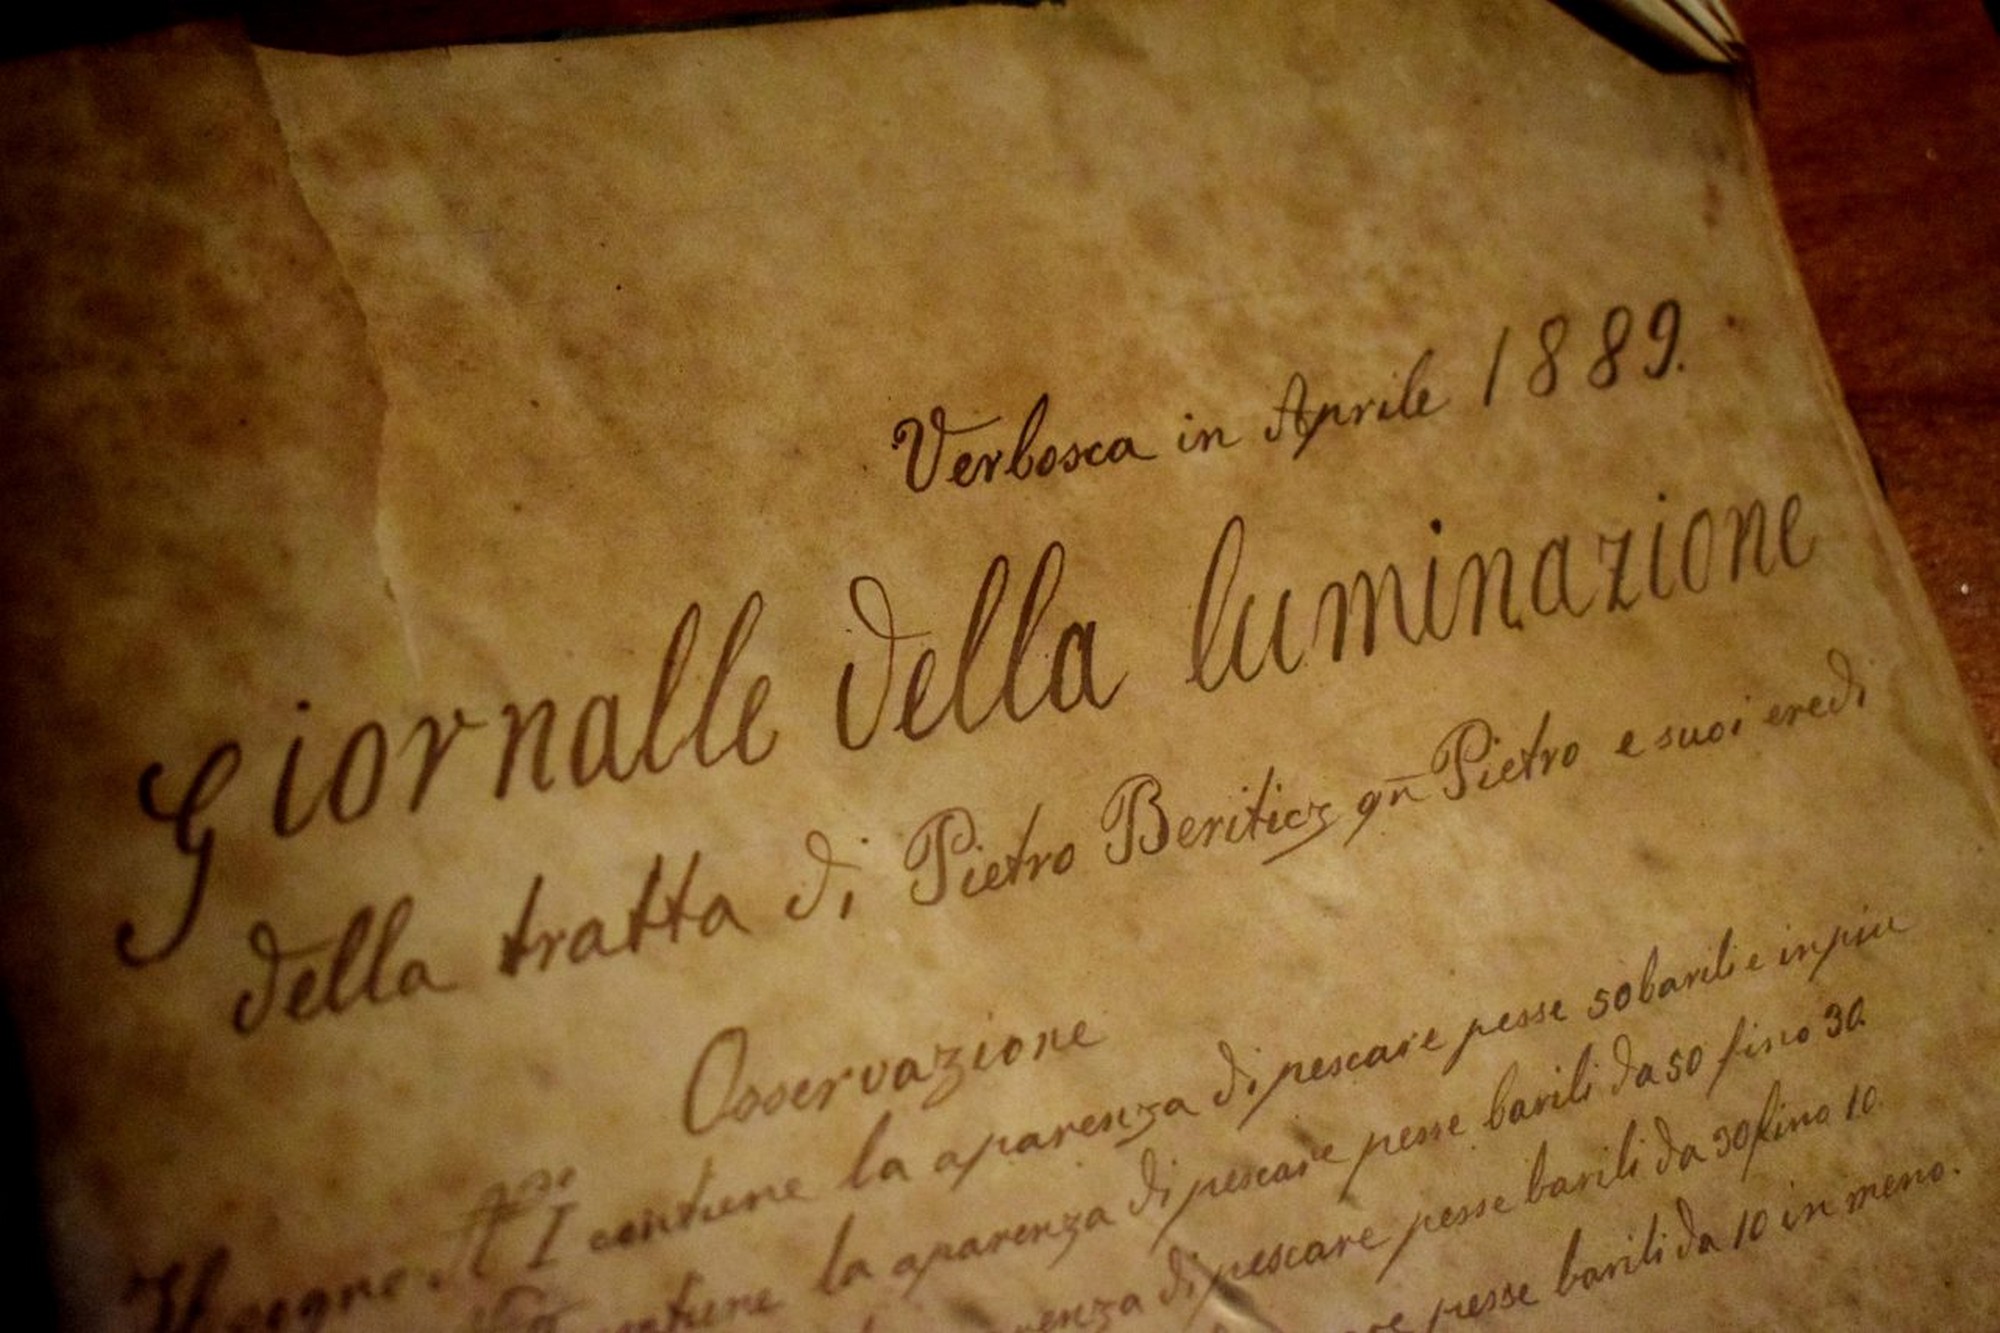 Verbosca in Aprile 1889.
Giornalle della luminazione
della tratta di Pietro Beriticz qn Pietro e suoi eredi
Osservazione
Il segne No I contiene la aparenza di pescare pesse 50 barili e in piu
contiene la aparenza di pescare pesse barili da 50 fino 30.
di pescare pesse barili da 30 fino 10.
pesse barili da 10 in meno.